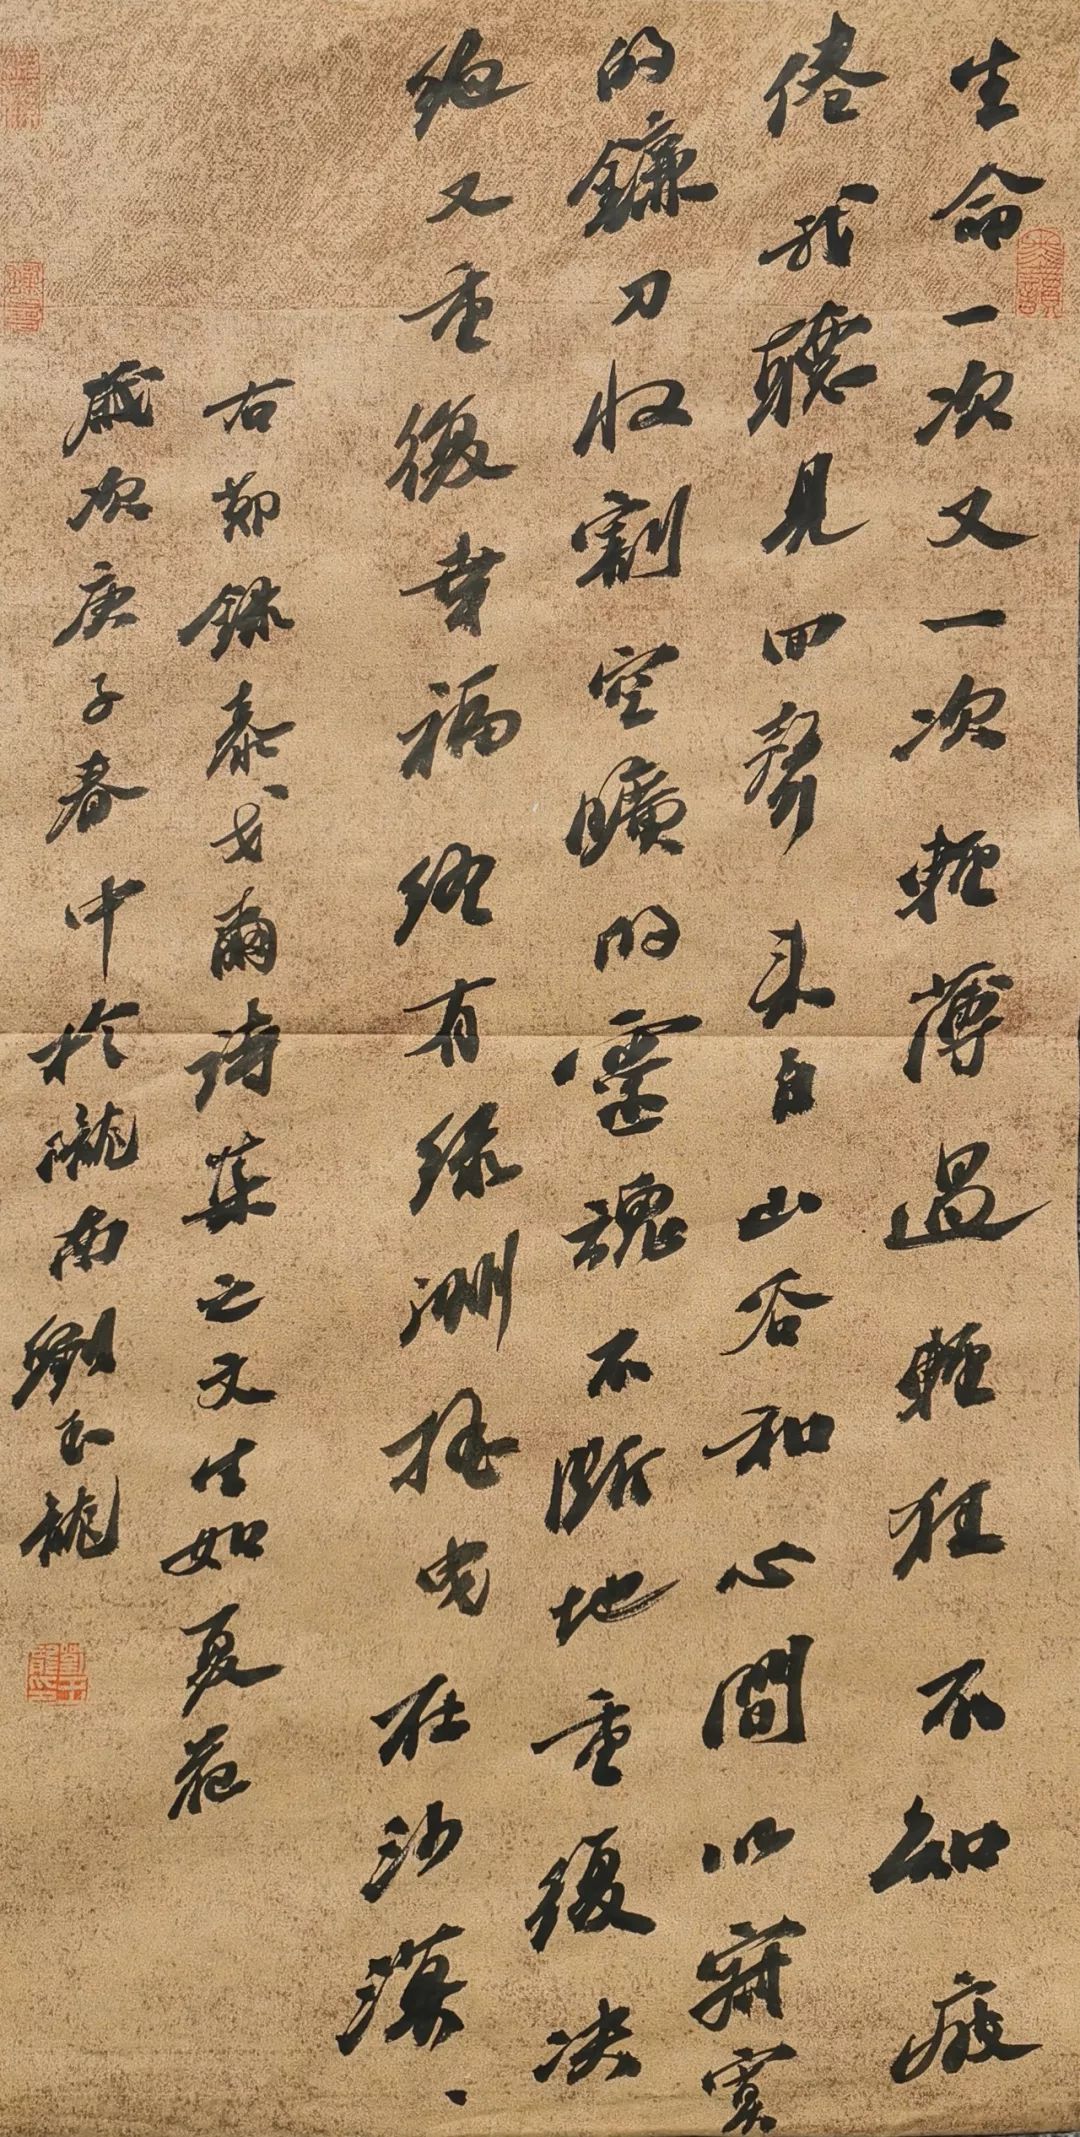 生命一次又一次輕薄過輕狂不知疲
倦我聽見回聲来自山谷和心間以寂寞
的鐮刀收割空曠的靈魂不斷地重復决
絶又重復幸福终有绿洲摇曳在沙漠
右節録泰戈爾詩集之文生如夏花
歲次庚子春中於隴南劉玉龍